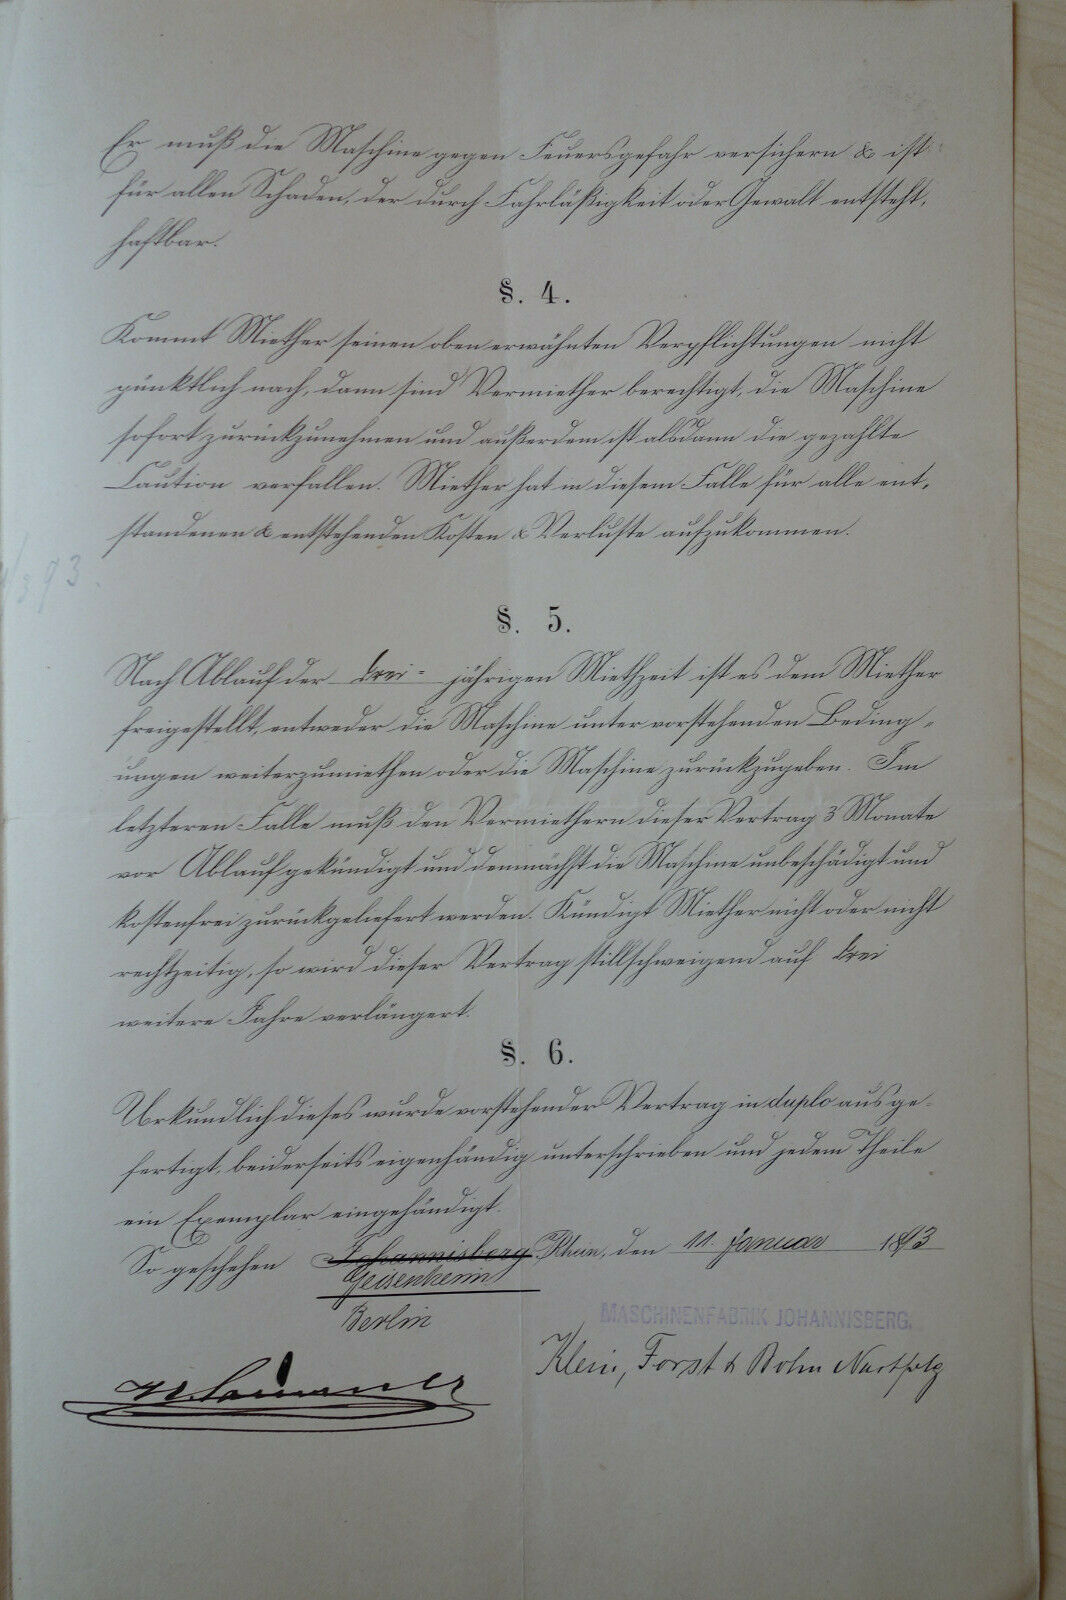 Er muß die Maschine gegen Feuersgefahr versichern & ist
für allen Schaden, der durch Fahrläßigkeit oder Gewalt entsteht,
haftbar.
§. 4.
Kommt Miether seinen oben erwähnten Verpflichtungen nicht
pünktlich nach, dann sind Vermiether berechtigt, die Maschine
sofort zurückzunehmen und außerdem ist alsdann die gezahlte
Caution verfallen. Miether hat in diesem Falle für alle ent-
standenen & entstehenden Kosten & Verluste aufzukommen.
§. 5.
Nach Ablauf der drei - jährigen Miethzeit ist es dem Miether
freigestellt, entweder die Maschine unter vorstehenden Beding-
ungen weiterzumiethen oder die Maschine zurückzugeben. Im
letzteren Falle muß den Vermiethern dieser Vertrag 3 Monate
vor Ablauf gekündigt und demnächst die Maschine unbeschädigt und
kostenfrei zurückgeliefert werden. Kündigt Miether nicht oder nicht
rechtzeitig, so wird dieser Vertrag stillschweigend auf drei
weitere Jahre verlängert.
§. 6.
Urkundlich dieses wurde vorstehender Vertrag in duplo ausge-
fertigt, beiderseits eigenhändig unterschrieben und jedem Theile
ein Exemplar eingehändigt.
So geschehen Johannisberg Rhein, den 11. Januar 1893
Geisenheim
Berlin
MASCHINENFABRIK JOHANNISBERG.
Klein, Forst & Bohn Nachfolg